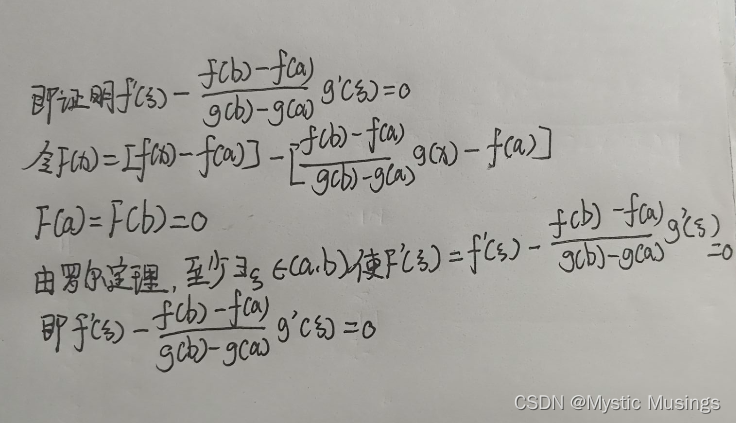 即证明f'(ξ) - \frac{f(b)-f(a)}{g(b)-g(a)} g'(ξ)=0
令F(x)=[f(x)-f(a)]-[\frac{f(b)-f(a)}{g(b)-g(a)}g(x)-f(a)]
F(a)=F(b)=0
由罗尔定理,至少∃ξ∈(a,b),使F'(ξ)=f'(ξ)-\frac{f(b)-f(a)}{g(b)-g(a)}g'(ξ)=0
即f'(ξ)-\frac{f(b)-f(a)}{g(b)-g(a)} g'(ξ)=0
CSDN @Mystic Musings